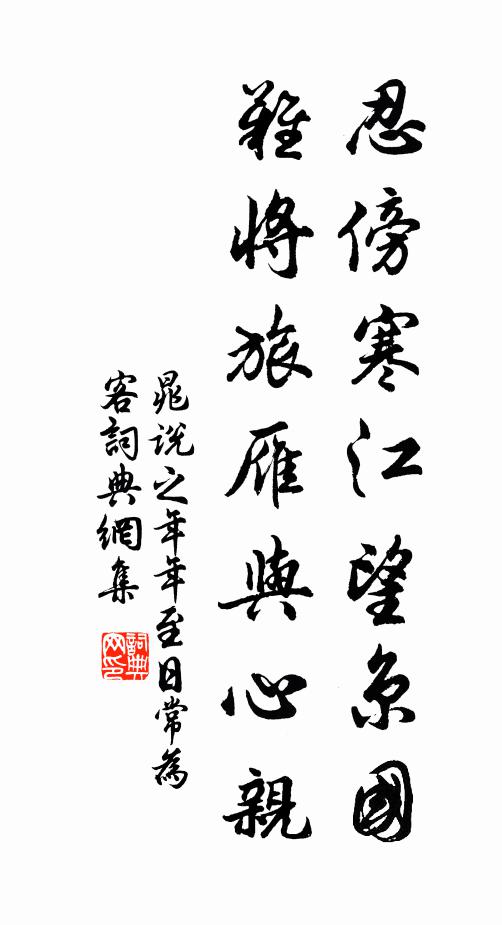 忍傍寒江望京國
難將旅雁與心親
晁説之年年至日常為
客詞典網集
詞典
网印